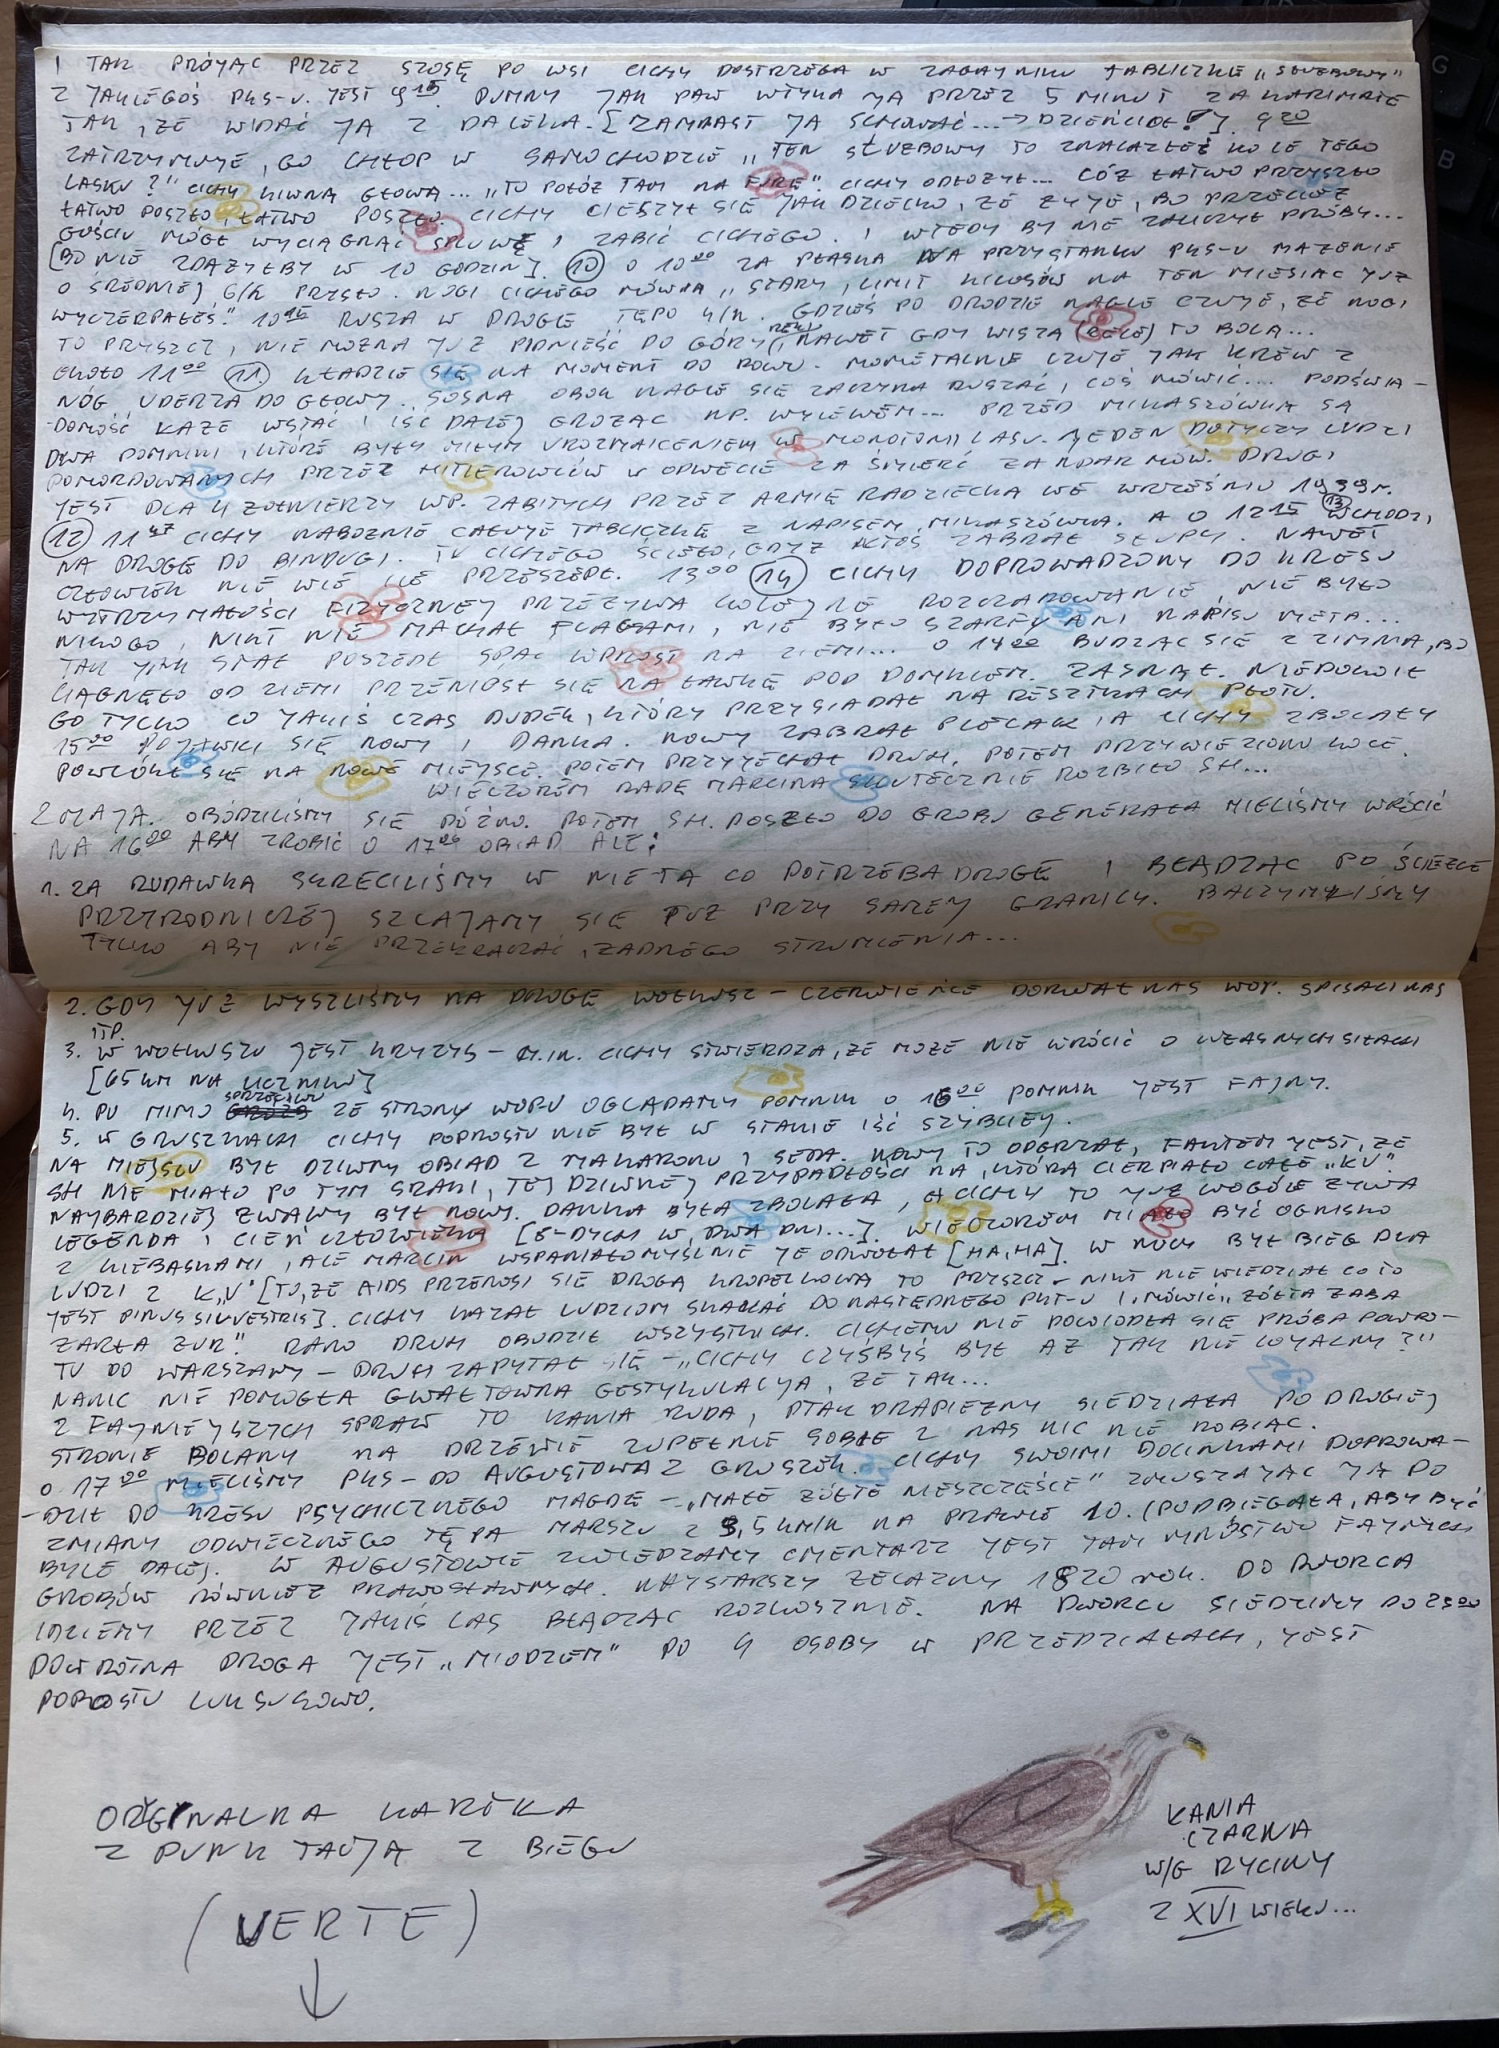 I TAK PRÓJĄC PRZEZ SZOSĘ PO WSI CICHY DOSTRZEGA W ZAGAJNIKU TABLICZKĘ „SŁUŻBOWY"
Z JAKIEGOŚ PKS-U. JEST 9¹⁵. DUMNY JAK PAW WTYKA JĄ PRZEZ 5 MINUT ZA KARIMATĘ
TAK, ŻE WIDAĆ JĄ Z DALEKA. [ZAMIAST JĄ SCHOWAĆ... → DZIEŃCIOŁ!]. 9²⁰
ZATRZYMUJE, GO CHŁOP W SAMOCHODZIE „TEN SŁUŻBOWY TO ZNALAZŁEŚ KOLE TEGO
LASKU?" CICHY KIWNĄ GŁOWĄ... „TO POŁÓŻ TAM NA FURĘ". CICHY ODŁOŻYŁ... CÓŻ ŁATWO PRZYSZŁO
ŁATWO POSZŁO, ŁATWO POSZŁO. CICHY CIESZYŁ SIĘ JAK DZIECKO, ŻE ŻYJE, BO PRZECIEŻ
GOŚCIU MÓGŁ WYCIĄGNĄĆ SPLUWĘ I ZABIĆ CICHEGO. I WTEDY BY NIE ZALICZYŁ PRÓBY...
[BO NIE ZDĄŻYŁBY W 10 GODZIN]. (10) O 10⁰⁰ ZA PŁASKĄ NA PRZYSTANKU PKS-U MARZENIE
O ŚREDNIEJ 6/H PRYSŁO. NOGI CICHEGO MÓWIĄ „STARY, LIMIT KILOSÓW NA TEN MIESIĄC JUŻ
WYCZERPAŁEŚ." 10¹⁵ RUSZA W DROGĘ TĘPO 4/H. GDZIEŚ PO DRODZE NAGLE CZUJE, ŻE NOGI
TO PRYSZCZ, NIE MOŻNA JUŻ PODNIEŚĆ DO GÓRY RĘKI, NAWET GDY WISZĄ (RĘCE) TO BOLĄ...
OKOŁO 11⁰⁰ (11.) KŁADZIE SIĘ NA MOMENT DO ROWU. MOMETALNIE CZUJE JAK KREW Z
NÓG UDERZA DO GŁOWY. SOSNA OBOK NAGLE SIĘ ZACZYNA RUSZAĆ, COŚ MÓWIĆ... PODŚWIA-
-DOMOŚĆ KAŻE WSTAĆ I IŚĆ DALEJ GROŻĄC NP. WYLEWEM... PRZED MIKASZÓWKĄ SĄ
DWA POMNIKI, KTÓRE BYŁY MIŁYM UROZMAICENIEM W MONOTONI LASU. JEDEN DOTYCZY LUDZI
POMORDOWANYCH PRZEZ HITLEROWCÓW W ODWECIE ZA ŚMIERĆ ŻANDARMÓW. DRUGI
JEST DLA 4 ŻOŁNIERZY WP. ZABITYCH PRZEZ ARMIĘ RADZIECKĄ WE WRZEŚNIU 1939 r.
(12) 11⁴⁷ CICHY NABOŻNIE CAŁUJE TABLICZKĘ Z NAPISEM MIKASZÓWKA. A O 12¹⁵ (13) WCHODZI
NA DROGĘ DO BINDUGI. TU CICHEGO ŚCIĘŁO, GDYŻ KTOŚ ZABRAŁ SŁUPKI. NAWET
CZŁOWIEK NIE WIE ILE PRZESZEDŁ. 13⁰⁰ (14) CICHY DOPROWADZONY DO KRESU
WYTRZYMAŁOŚCI FIZYCZNEJ PRZEŻYWA KOLEJNE ROZCZAROWANIE, NIE BYŁO
NIKOGO, NIKT NIE MACHAŁ FLAGAMI, NIE BYŁO SZARFY ANI NAPISU META...
TAK JAK STAŁ POSZEDŁ SPAĆ WPROST NA ZIEMI... O 14⁰⁰ BUDZĄC SIĘ Z ZIMNA, BO
CIĄGNĘŁO OD ZIEMI PRZENIÓSŁ SIĘ NA ŁAWKĘ POD DOMKIEM. ZASNĄŁ. NIEPOKOIŁ
GO TYLKO CO JAKIŚ CZAS DUDEK, KTÓRY PRZYSIADAŁ NA RESZTKACH PŁOTU.
15⁰⁰ POJAWILI SIĘ NOWY I DANKA. NOWY ZABRAŁ PLECAK, A CICHY ZBOLAŁY
POWLÓKŁ SIĘ NA NOWE MIEJSCE. POTEM PRZYJECHAŁ DRUH. POTEM PRZYWIEZIONO KOCE.
WIECZOREM RADĘ MARCINA SKUTECZNIE ROZBIŁO SH...
2 MAJA. OBÓDZILIŚMY SIĘ PÓŹNO. POTEM SH. POSZŁO DO GROBU GENERAŁA MIELIŚMY WRÓCIĆ
NA 16⁰⁰ ABY ZROBIĆ O 17⁰⁰ OBIAD ALE:
1. ZA RUDAWKĄ SKRĘCILIŚMY W NIE TĄ CO POTRZEBA DROGĘ I BŁĄDZĄC PO ŚCIEŻCE
PRZYRODNICZEJ SZLAJAMY SIĘ TUŻ PRZY SAMEJ GRANICY. BACZYMYLIŚMY
TYLKO ABY NIE PRZEKRACZAĆ, ŻADNEGO STRUMIENIA...
2. GDY JUŻ WYSZLIŚMY NA DROGĘ WOŁKUSZ – CZERWIEŃCE DORWAŁ NAS WOP. SPISALI NAS
ITP.
3. W WOŁKUSZU JEST KRYZYS – M.IN. CICHY STWIERDZA, ŻE MOŻE NIE WRÓCIĆ O WŁASNYCH SIŁACH
[65 KM NA LICZNIKU]
4. PO MIMO SPRZECIWU ZE STRONY WOPU OGLĄDAMY POMNIK O 16⁰⁰ POMNIK JEST FAJNY.
5. W GRUSZKACH CICHY POPROSTU NIE BYŁ W STANIE IŚĆ SZYBCIEJ.
NA MIEJSCU BYŁ DZIWNY OBIAD Z MAKARONU I SERA. NOWY TO ODGRZAŁ, FAKTEM JEST, ŻE
SH NIE MIAŁO PO TYM SRAKI, TEJ DZIWNEJ PRZYPADŁOŚCI NA, KTÓRĄ CIERPIAŁO CAŁE „KV".
NAJBARDZIEJ ŻWAWY BYŁ NOWY. DANKA BYŁA ZBOLAŁA, A CICHY TO JUŻ WOGÓLE ŻYWA
LEGENDA I CIEŃ CZŁOWIEKA [8-DYCH W DWA DNI...]. WIECZOREM MIAŁO BYĆ OGNISKO
Z KIEBASKAMI, ALE MARCIN WSPANIAŁOMYŚLNIE JE ODWOŁAŁ [HA, HA]. W NOCY BYŁ BIEG DLA
LUDZI Z „K,V" [TO, ŻE AIDS PRZENOSI SIĘ DROGĄ KROPELKOWĄ TO PRYSZCZ – NIKT NIE WIEDZIAŁ CO TO
JEST PINUS SILVESTRIS]. CICHY KAZAŁ LUDZIOM SKAKAĆ DO NASTĘPNEGO PKT-U I „MÓWIĆ" ŻÓŁTA ŻABA
ŻARŁA ŻUR". RANO DRUH OBUDZIŁ WSZYSTKICH. CICHEMU NIE POWIODŁA SIĘ PRÓBA POWRO-
TU DO WARSZAWY – DRUH ZAPYTAŁ SIĘ – „CICHY CZYŻBYŚ BYŁ AŻ TAK NIE LOYALNY?"
NANIC NIE POMOGŁA GWAŁTOWNA GESTYKULACJA, ŻE TAK...
Z FAJNIEJSZYCH SPRAW TO KANIA RUDA, PTAK DRAPIEŻNY SIEDZIAŁA PO DRUGIEJ
STRONIE POLANY NA DRZEWIE ZUPEŁNIE SOBIE Z NAS NIC NIE ROBIĄC.
O 17⁰⁰ MIELIŚMY PKS – DO AUGUSTOWA Z GRUSZEK. CICHY SWOIMI DOCINKAMI DOPROWA-
-DZIŁ DO KRESU PSYCHICZNEGO MAGDĘ – „MAŁE ŻÓŁTE NIESZCZĘŚCIE" ZMUSZAJĄC JĄ DO
ZMIANY ODWIECZNEGO TĘPA MARSZU Z 3,5 KM/H NA PRAWIE 10. (PODBIEGAŁA, ABY BYĆ
BYLE DALEJ. W AUGUSTOWIE ZWIEDZAMY CMENTARZ JEST TAM MNÓSTWO FAJNYCH
GROBÓW RÓWNIEŻ PRAWOSŁAWNYCH. NAJSTARSZY ŻELAZNY 1820 ROK. DO DWORCA
IDZIEMY PRZEZ JAKIŚ LAS BŁĄDZĄC ROZKOSZNIE. NA DWORCU SIEDZIMY DO 23⁰⁰
POWROTNA DROGA JEST „MIODZEM" PO 4 OSOBY W PRZEDZIAŁACH, JEST
POPROSTU LUKSUSOWO.
ORYGINALNA KARTKA
Z PUNKTACJĄ Z BIEGU
(VERTE)
KANIA
CZARNA
W/G RYCINY
Z XVI WIEKU...